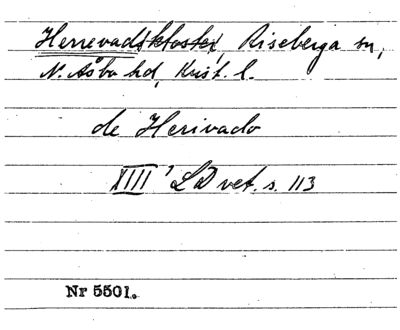 Herrevadskloster, Riseberga sn,
N. Åsbo hd, Krist. l.
de Herivado
XIII¹ LD vet. s. 113
Nr 5501.